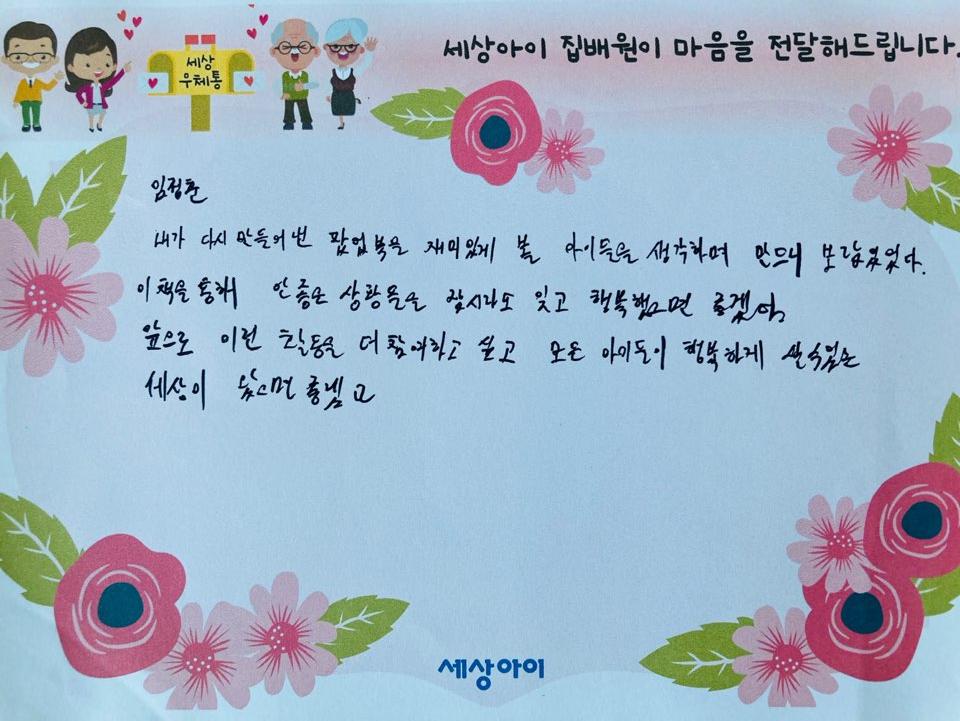 세상아이 집배원이 마음을 전달해드립니다.
세상
우체통
임정훈
내가 다시 만들어 낸 팝업북을 재미있게 볼 아이들을 생각하며 만드니 보람있었다.
이 책을 통해 안 좋은 상황들을 잠시라도 잊고 행복했으면 좋겠어
앞으로 이런 활동을 더 참여하고 싶고 모든 아이들이 행복하게 살 수 있는
세상이 왔으면 좋겠고
세상아이